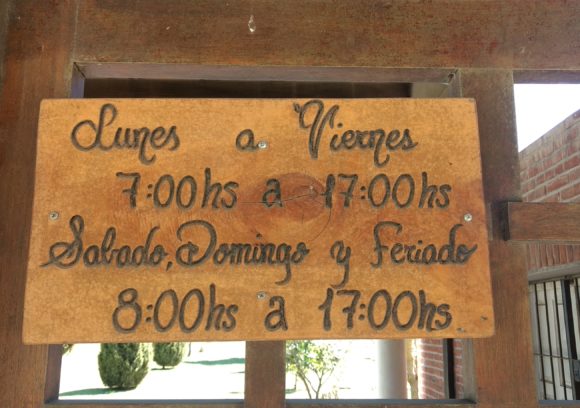 Lunes a Viernes
7:00hs a 17:00hs
Sabado, Domingo y Feriado
8:00hs a 17:00hs.